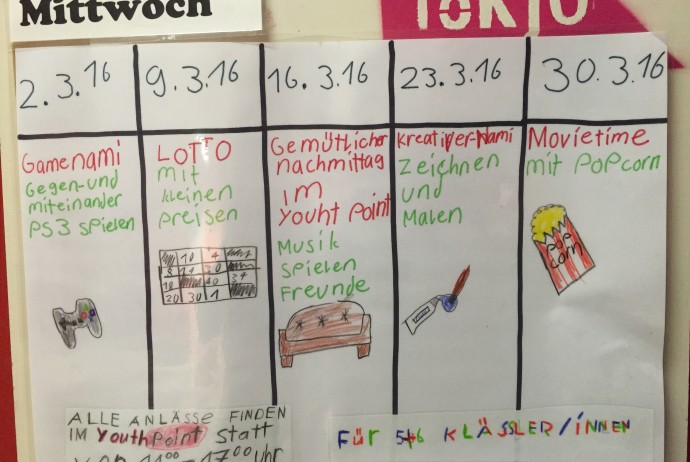 Mittwoch
TOKYO
2.3.16
9.3.16
16.3.16
23.3.16
30.3.16
Gamenami
Gegen-und
miteinander
PS3 spielen
LOTTO
mit
kleinen
preisen
Gemütlicher
nachmittag
im
youht point
Musik
spielen
Freunde
Kreativer-Nami
Zeichnen
und
Malen
Movietime
mit Popcorn
POP
CORN
10 4
8 24 30
10 40 34
20 30 1
ALLE ANLÄSSE FINDEN
IM Youth Point statt
VON 14 00 - 17 00 uhr
FÜR 5+6 KLÄSSLER/INNEN